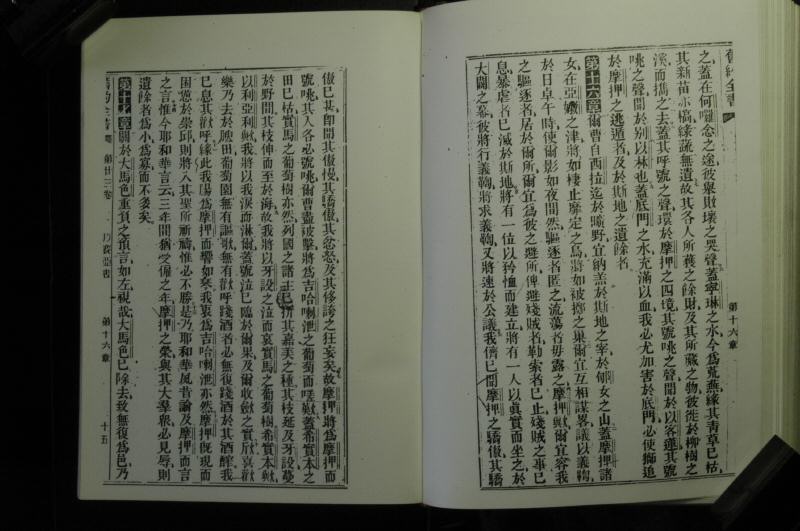 舊約全書
第十六章
之蓋在何囉念之途彼舉敗壞之哭聲蓋寧琳之水今為荒蕪緣其青草已枯
其新苗亦槁綠蔬無遺故其各人所獲之餘財及其所藏之物彼徙於柳樹之
溪而攜之去蓋其呼號之聲環於摩押之四境其號咷之聲聞於以客蓮其號
咷之聲聞於别以林也蓋底門之水充滿以血我必尤加害於底門必使獅追
於摩押之逃遁者及於斯地之遺餘者
第十六章爾曹自西拉迄於曠野宜納羔於斯地之宰於郇女之山蓋摩押諸
女在亞嫩之津將如棲止靡定之鳥將如被擲之巢爾宜互相謀畧議以義鞫
於日卓午時使爾影如夜間然驅逐者匿之流蕩者毋露之摩押歟爾宜容我
之驅逐者居於爾所爾宜為彼之避所俾避殘賊者勒索者已止殘賊之事已
息暴虐者已滅於斯地將有一位以矜恤而建立將有一人以眞實而坐之於
大闢之幕彼將行義鞫將求義鞫又將速於公議我儕已聞摩押之驕傲其驕
傲已甚即聞其傲慢其驕傲其忿怒及其侈誇之狂妄矣故摩押將為摩押而
號咷其人各必號咷爾曹蓋被擊將為吉哈喇泄之葡萄而嗟歎蓋希實本之
田已枯實馬之葡萄樹亦然列國之諸主已折其嘉美之種其枝延及牙設蔓
於野間其枝伸而至於海故我將以牙設之泣而哀實馬之葡萄樹希實本歟
以利亞利歟我將以我淚而淋爾蓋號泣已臨於爾果及爾收斂之實欣喜歡
樂乃去於腴田葡萄園無有謳歌無有歡呼踐酒者必無復踐酒於其酒醡我
已息其歡呼緣此我腸為摩押而響如琴我衷為吉哈喇泄亦然摩押既現而
困憊於崇邱則將入其聖所祈禱惟必不勝是乃耶和華夙昔論及摩押而言
之言惟今耶和華言云三年間猶受僱之年摩押之榮與其大羣衆必見辱則
遺餘者為小為寡而不多矣
第十七章關於大馬色重負之預言如左視哉大馬色已除去致無復為邑乃
舊約全書 第廿三卷 以賽亞書 第十六章 十五